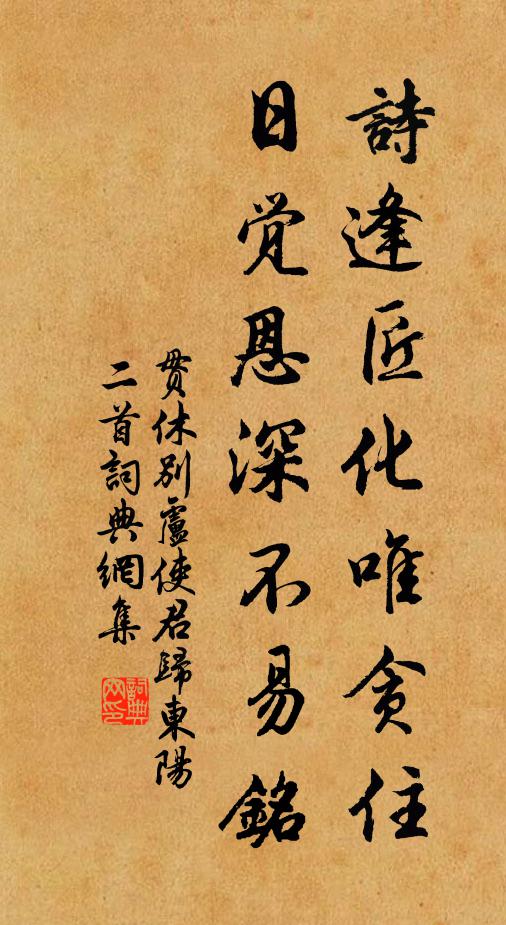 詩逢匠化唯贪住
日觉恩深不易銘
贯休别盧使君歸東陽
二首詞典網集
詞典
网印